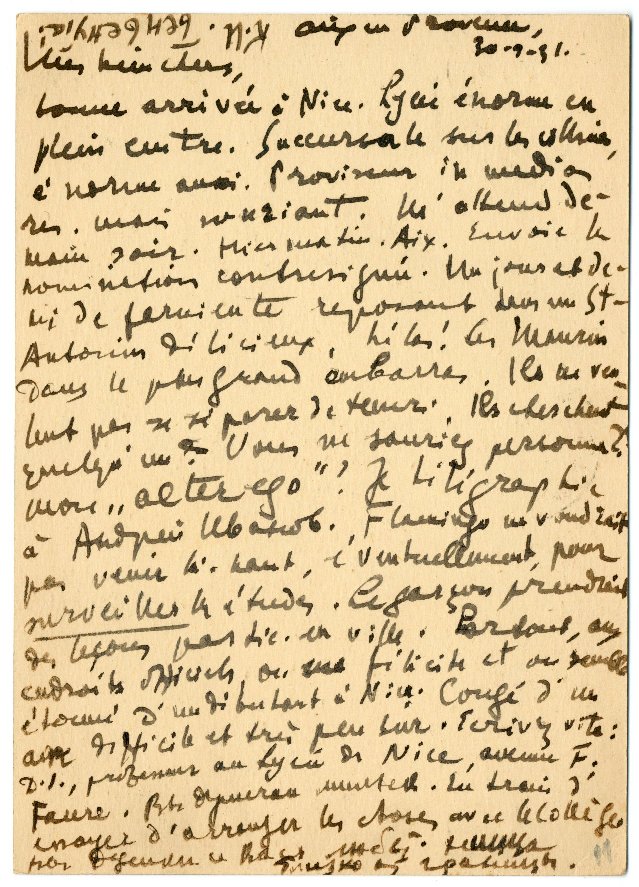 Aix en Provence,
30-9-31.
Mes bien chers,
bonne arrivée à Nice. Lycée énorme en
plein centre. Succursale sur les collines,
énorme aussi. Proviseur in medias
res. mais souriant. M'attend de-
main soir. Hier matin. Aix. Envoie la
nomination contresignée. Un jour et de-
mi de farniente reposant dans un St-
Antonin délicieux, hélas! Les Maurin
dans le plus grand embarras. Ils ne veu-
lent pas se séparer de Ils cherchent
quelqu'un? Vous ne sauriez personne?
mon "alter ego"? Je télégraphie
à Андрей Иванов. Flamingo ne voudrait
pas venir ici. éventuellement, pour
surveiller les études. Le garçon prendrait
des leçons partic. en ville. Partout, aux
endroits officiels, on me félicite et on semble
étonné d'un débutant à Nice. Congé d'un
an difficile et très peu sûr. Ecrivez vite:
D.S., professeur au Lycée de Nice, avenue F.
Faure. En train d'
essayer d'arranger les choses avec le Collège